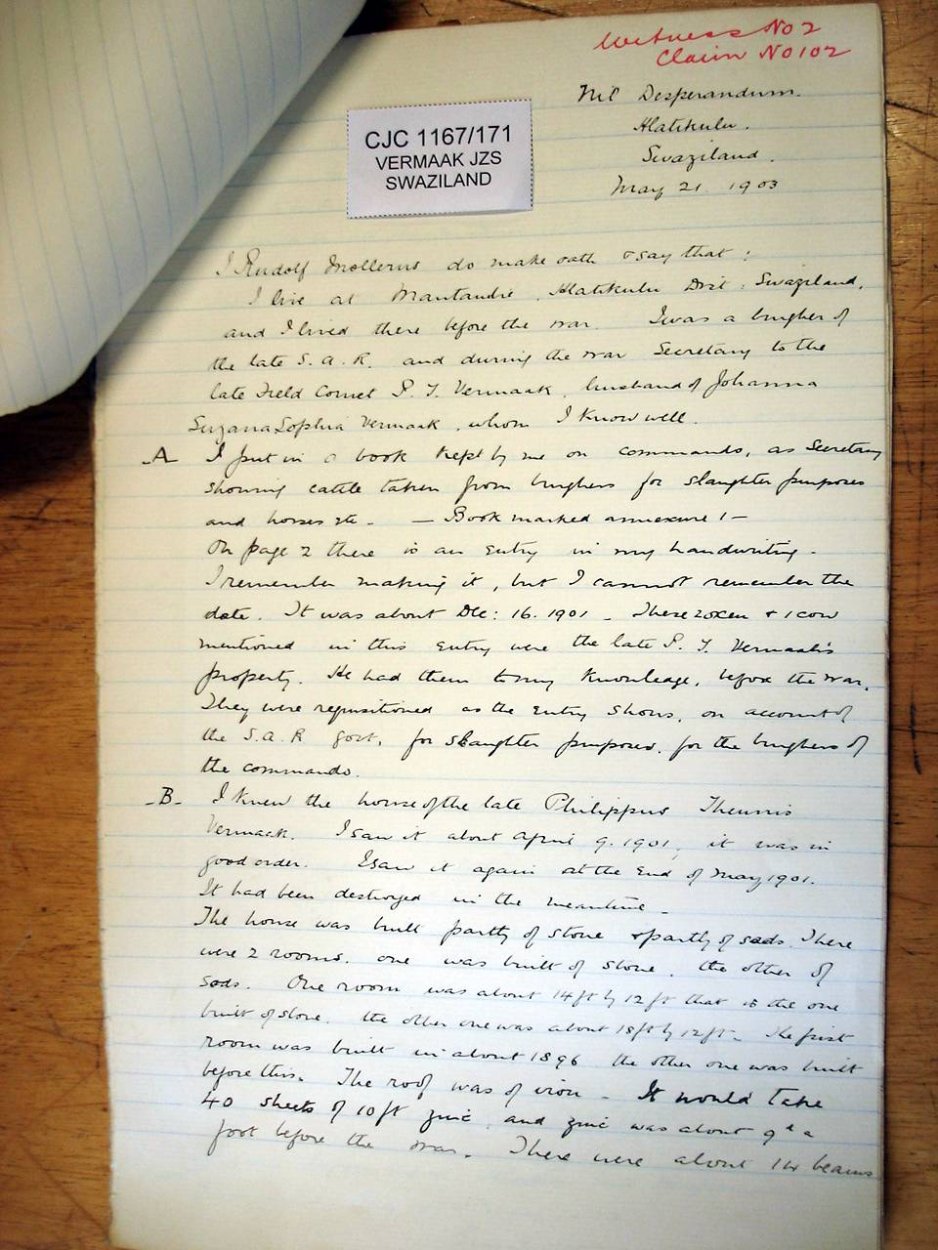 Witness No 2
Claim No 102
CJC 1167/171
VERMAAK JZS
SWAZILAND
Nil Desperandum.
Hlatikulu.
Swaziland.
May 21 1903
I Rudolf Mollerus do make oath & say that:
I live at , Hlatikulu Dist: Swaziland,
and I lived there before the war. I was a burgher of
the late S.A.R. and during the war Secretary to the
late Field Cornet P. T. Vermaak, husband of Johanna
Suzana Sophia Vermaak, whom I know well.
-A- I put in a book kept by me on commando, as Secretary
showing cattle taken from burghers for slaughter purposes
and horses etc. — Book marked annexure 1 —
On page 2 there is an entry in my handwriting.
I remember making it, but I cannot remember the
date. It was about Dec: 16. 1901. These 2 oxen & 1 cow
mentioned in this entry were the late P. T. Vermaak's
property. He had them to my knowledge, before the war.
They were requisitioned as the entry shows, on account of
the S.A.R govt, for slaughter purposes, for the burghers of
the commando.
-B- I knew the house of the late Philippus Theunis
Vermaak. I saw it about April 9. 1901, it was in
good order. I saw it again at the end of May 1901.
It had been destroyed in the meantime.
The house was built partly of stone & partly of sods. There
were 2 rooms. one was built of stone, the other of
sods. One room was about 14 ft by 12 ft that is the one
built of stone. the other one was about 18 ft by 12 ft. The first
room was built in about 1896 the other one was built
before this. The roof was of iron. It would take
40 sheets of 10 ft zinc, and zinc was about 9d a
foot before the war. There were about 14 beams